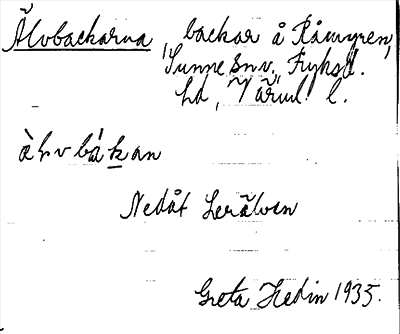 Älvbackarna, backar å Råmyren,
Sunne sn v. Fryksd.
hd, Värml. l.
àhvbákan
Nedåt Lerälven
Greta Hedin 1935.